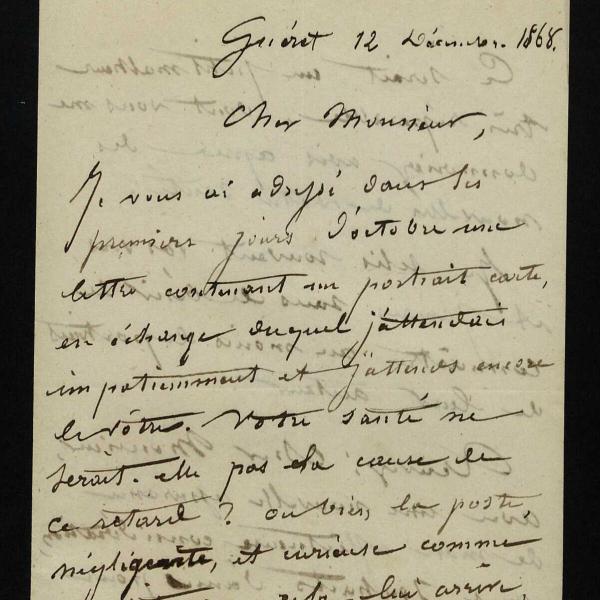 Guéret 12 Décembre 1868.
Cher Monsieur,
Je vous ai adressé dans les
premiers jours d'octobre une
lettre contenant un portrait carte,
en échange duquel j'attendais
impatiemment et j'attends encore
le vôtre. Votre santé ne
serait-elle pas la cause de
ce retard ? ou bien la poste,
négligente, et curieuse comme
lui arrive,